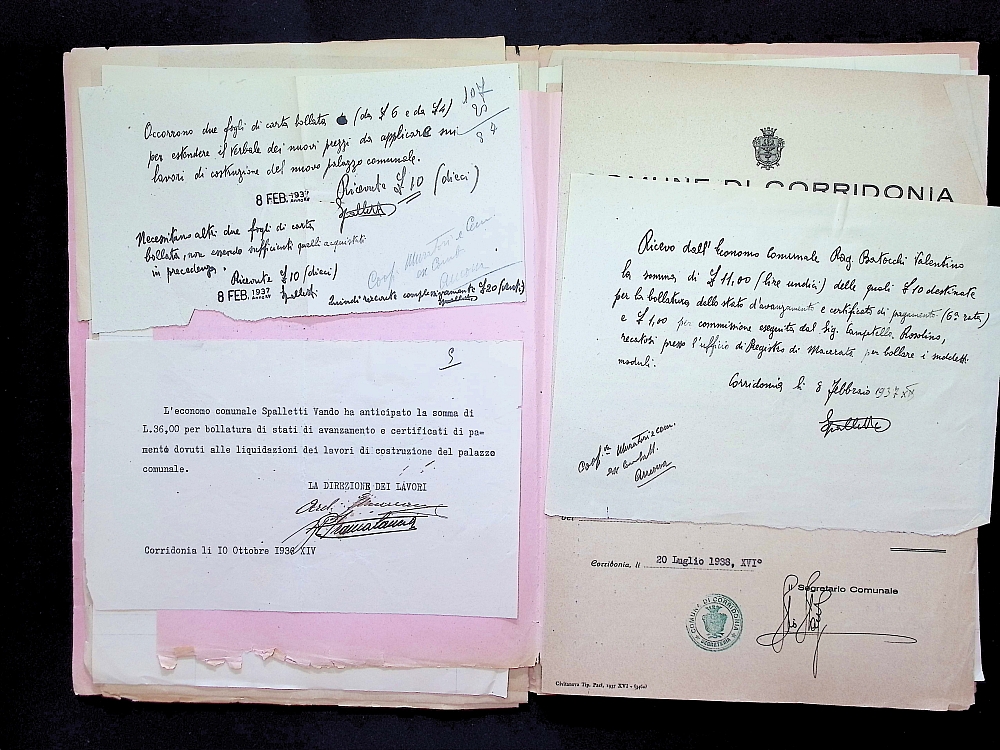 Occorrono due fogli di carta bollata (da £6 e da £4)
per estendere il verbale dei nuovi prezzi da applicare sui
lavori di costruzione del nuovo palazzo comunale.
107
20
8 FEB. 1937
Ricevute £ 10 (dieci)
Spalletti
Necessitano altri due fogli di carta
bollata, non essendo sufficienti quelli acquistati
in precedenza.
Ricevute £10 (dieci)
8 FEB. 1937
Spalletti
Quindi ricevute complessivamente £20 (venti)
Spalletti
Coop. Muratori e Cem.
ex Comb.
Ancona
L'economo comunale Spalletti Vando ha anticipato la somma di
L.36,00 per bollatura di stati di avanzamento e certificati di pa-
mento dovuti alle liquidazioni dei lavori di costruzione del palazzo
comunale.
LA DIREZIONE DEI LAVORI
Arch.
Corridonia li IO Ottobre 1936 XIV
COMUNE DI CORRIDONIA
Ricevo dall'Economo Comunale Rag. Batocchi Valentino
la somma di £ 11,00 (lire undici) delle quali £10 destinate
per la bollatura dello stato d'avanzamento e certificato di pagamento (6ª rata)
e £ 1,00 per commissione eseguita dal Sig. Rosolino,
recatosi presso l'ufficio di Registro di Macerata per bollare i suddetti
moduli.
Corridonia li 8 Febbraio 1937 XV
Spalletti
Coop.va Muratori e cem.
ex Combatt.
Ancona
Corridonia, li 20 Luglio 1938, XVI°
Il Segretario Comunale
COMUNE DI CORRIDONIA
SEGRETERIA
Civitanova Tip. Paci, 1937 XVI - (3460)